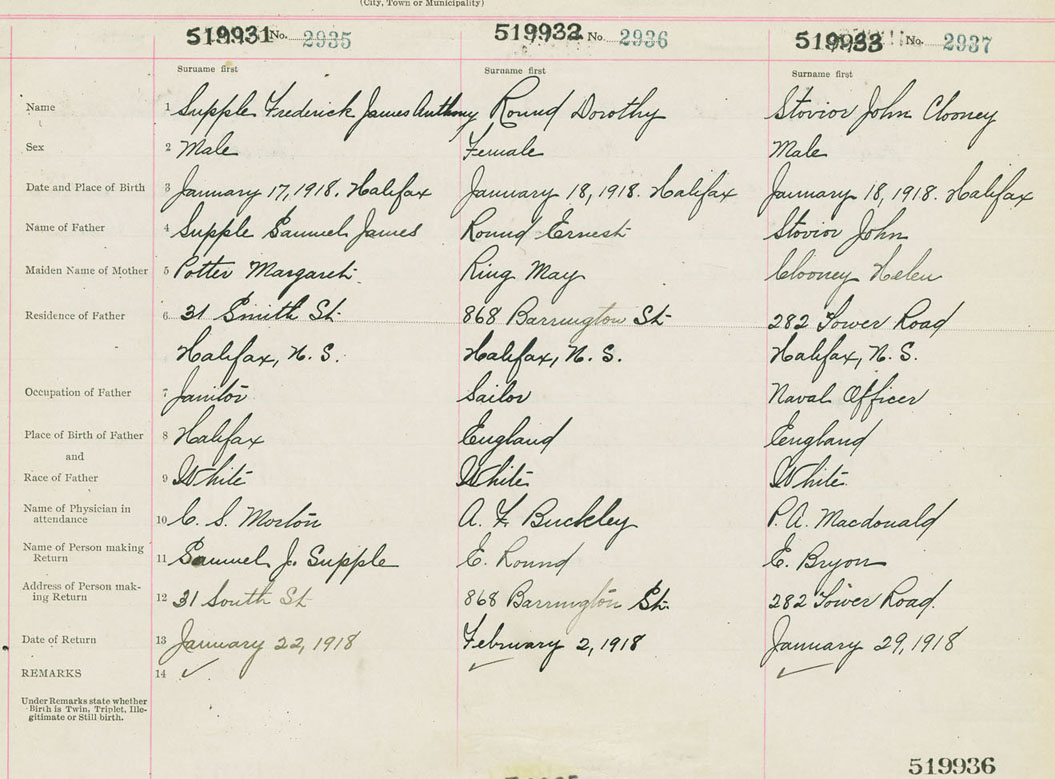 (City, Town or Municipality)
519931 No. 2935 519932 No. 2936 519933 No. 2937
Surname first Surname first Surname first
Name 1 Supple Frederick James Anthony Round Dorothy Stovior John Clooney
Sex 2 Male Female Male
Date and Place of Birth 3 January 17, 1918. Halifax January 18, 1918. Halifax January 18, 1918. Halifax
Name of Father 4 Supple Samuel James Round Ernest Stovior John
Maiden Name of Mother 5 Potter Margaret Ring May Clooney Helen
Residence of Father 6 31 Smith St. 868 Barrington St. 282 Tower Road
Halifax, N. S. Halifax, N. S. Halifax, N. S.
Occupation of Father 7 Janitor Sailor Naval Officer
Place of Birth of Father 8 Halifax England England
and
Race of Father 9 White White White
Name of Physician in
attendance 10 C. S. Morton A. F. Buckley P. A. Macdonald
Name of Person making
Return 11 Samuel J. Supple E. Round E. Bryon
Address of Person mak-
ing Return 12 31 South St 868 Barrington St. 282 Tower Road.
Date of Return 13 January 22, 1918 February 2, 1918 January 29, 1918
REMARKS 14 ✓ ✓ ✓
Under Remarks state whether
Birth is Twin, Triplet, Ille-
gitimate or Still birth.
519936